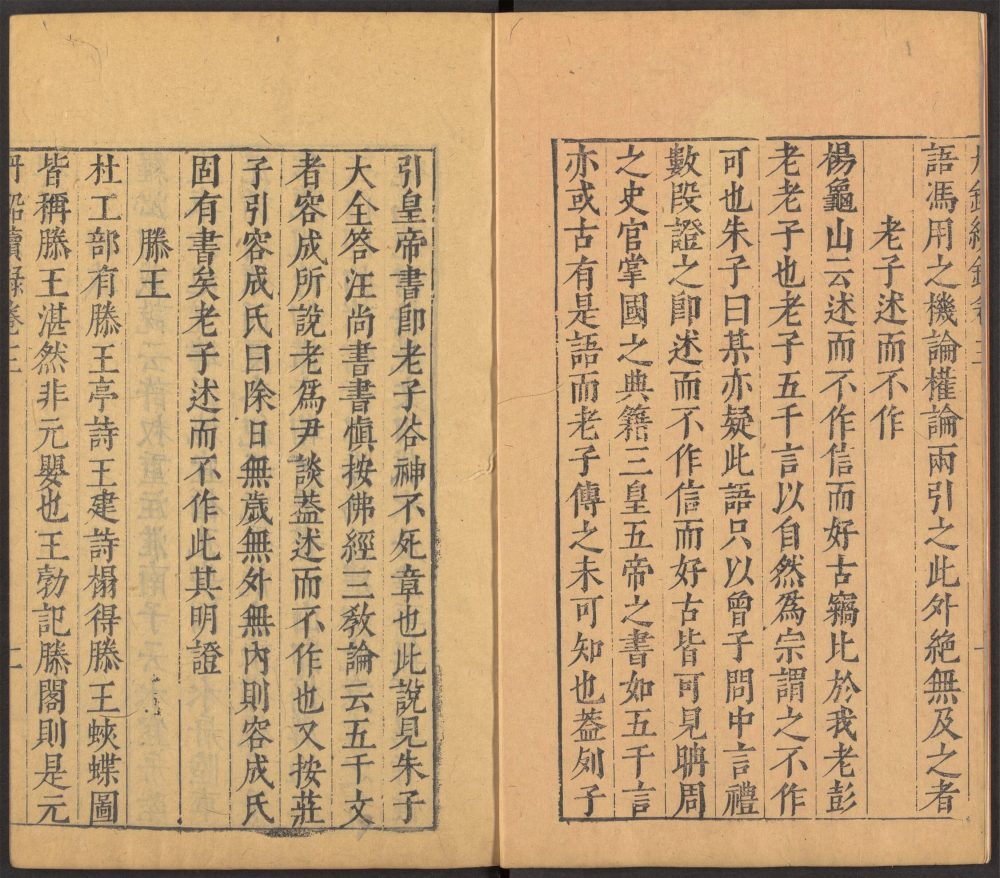 丹鉛續錄卷三
語馮用之機論權論兩引之此外絶無及之者
老子述而不作
楊龜山云述而不作信而好古竊比於我老彭
老老子也老子五千言以自然爲宗謂之不作
可也朱子曰某亦疑此語只以曾子問中言禮
數段證之卽述而不作信而好古皆可見聃周
之史官掌國之典籍三皇五帝之書如五千言
亦或古有是語而老子傳之未可知也葢列子
引皇帝書卽老子谷神不死章也此說見朱子
大全答汪尚書書愼按佛經三敎論云五千文
者容成所說老爲尹談葢述而不作也又按莊
子引容成氏曰除日無歲無外無內則容成氏
固有書矣老子述而不作此其明證
滕王
杜工部有滕王亭詩王建詩搨得滕王蛺蝶圖
皆稱滕王湛然非元嬰也王勃記滕閣則是元
丹鉛續錄卷三 七